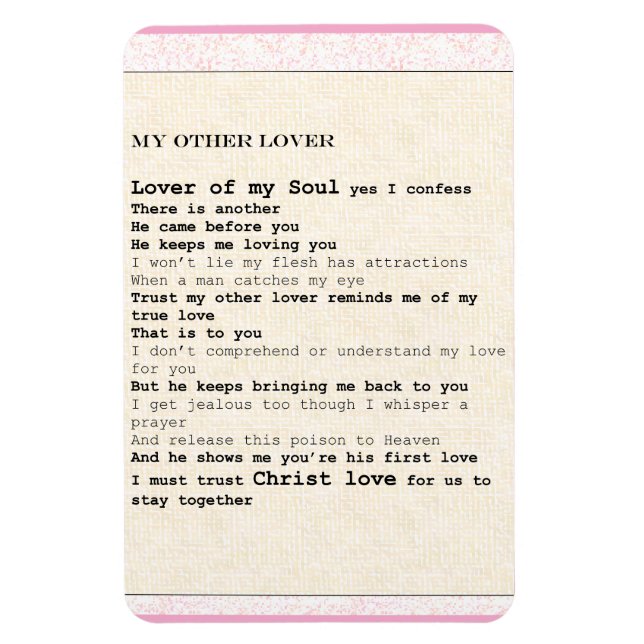 MY OTHER LOVER
Lover of my Soul yes I confess
There is another
He came before you
He keeps me loving you
I won't lie my flesh has attractions
When a man catches my eye
Trust my other lover reminds me of my
true love
That is to you
I don't comprehend or understand my love
for you
But he keeps bringing me back to you
I get jealous too though I whisper a
prayer
And release this poison to Heaven
And he shows me you're his first love
I must trust Christ love for us to
stay together